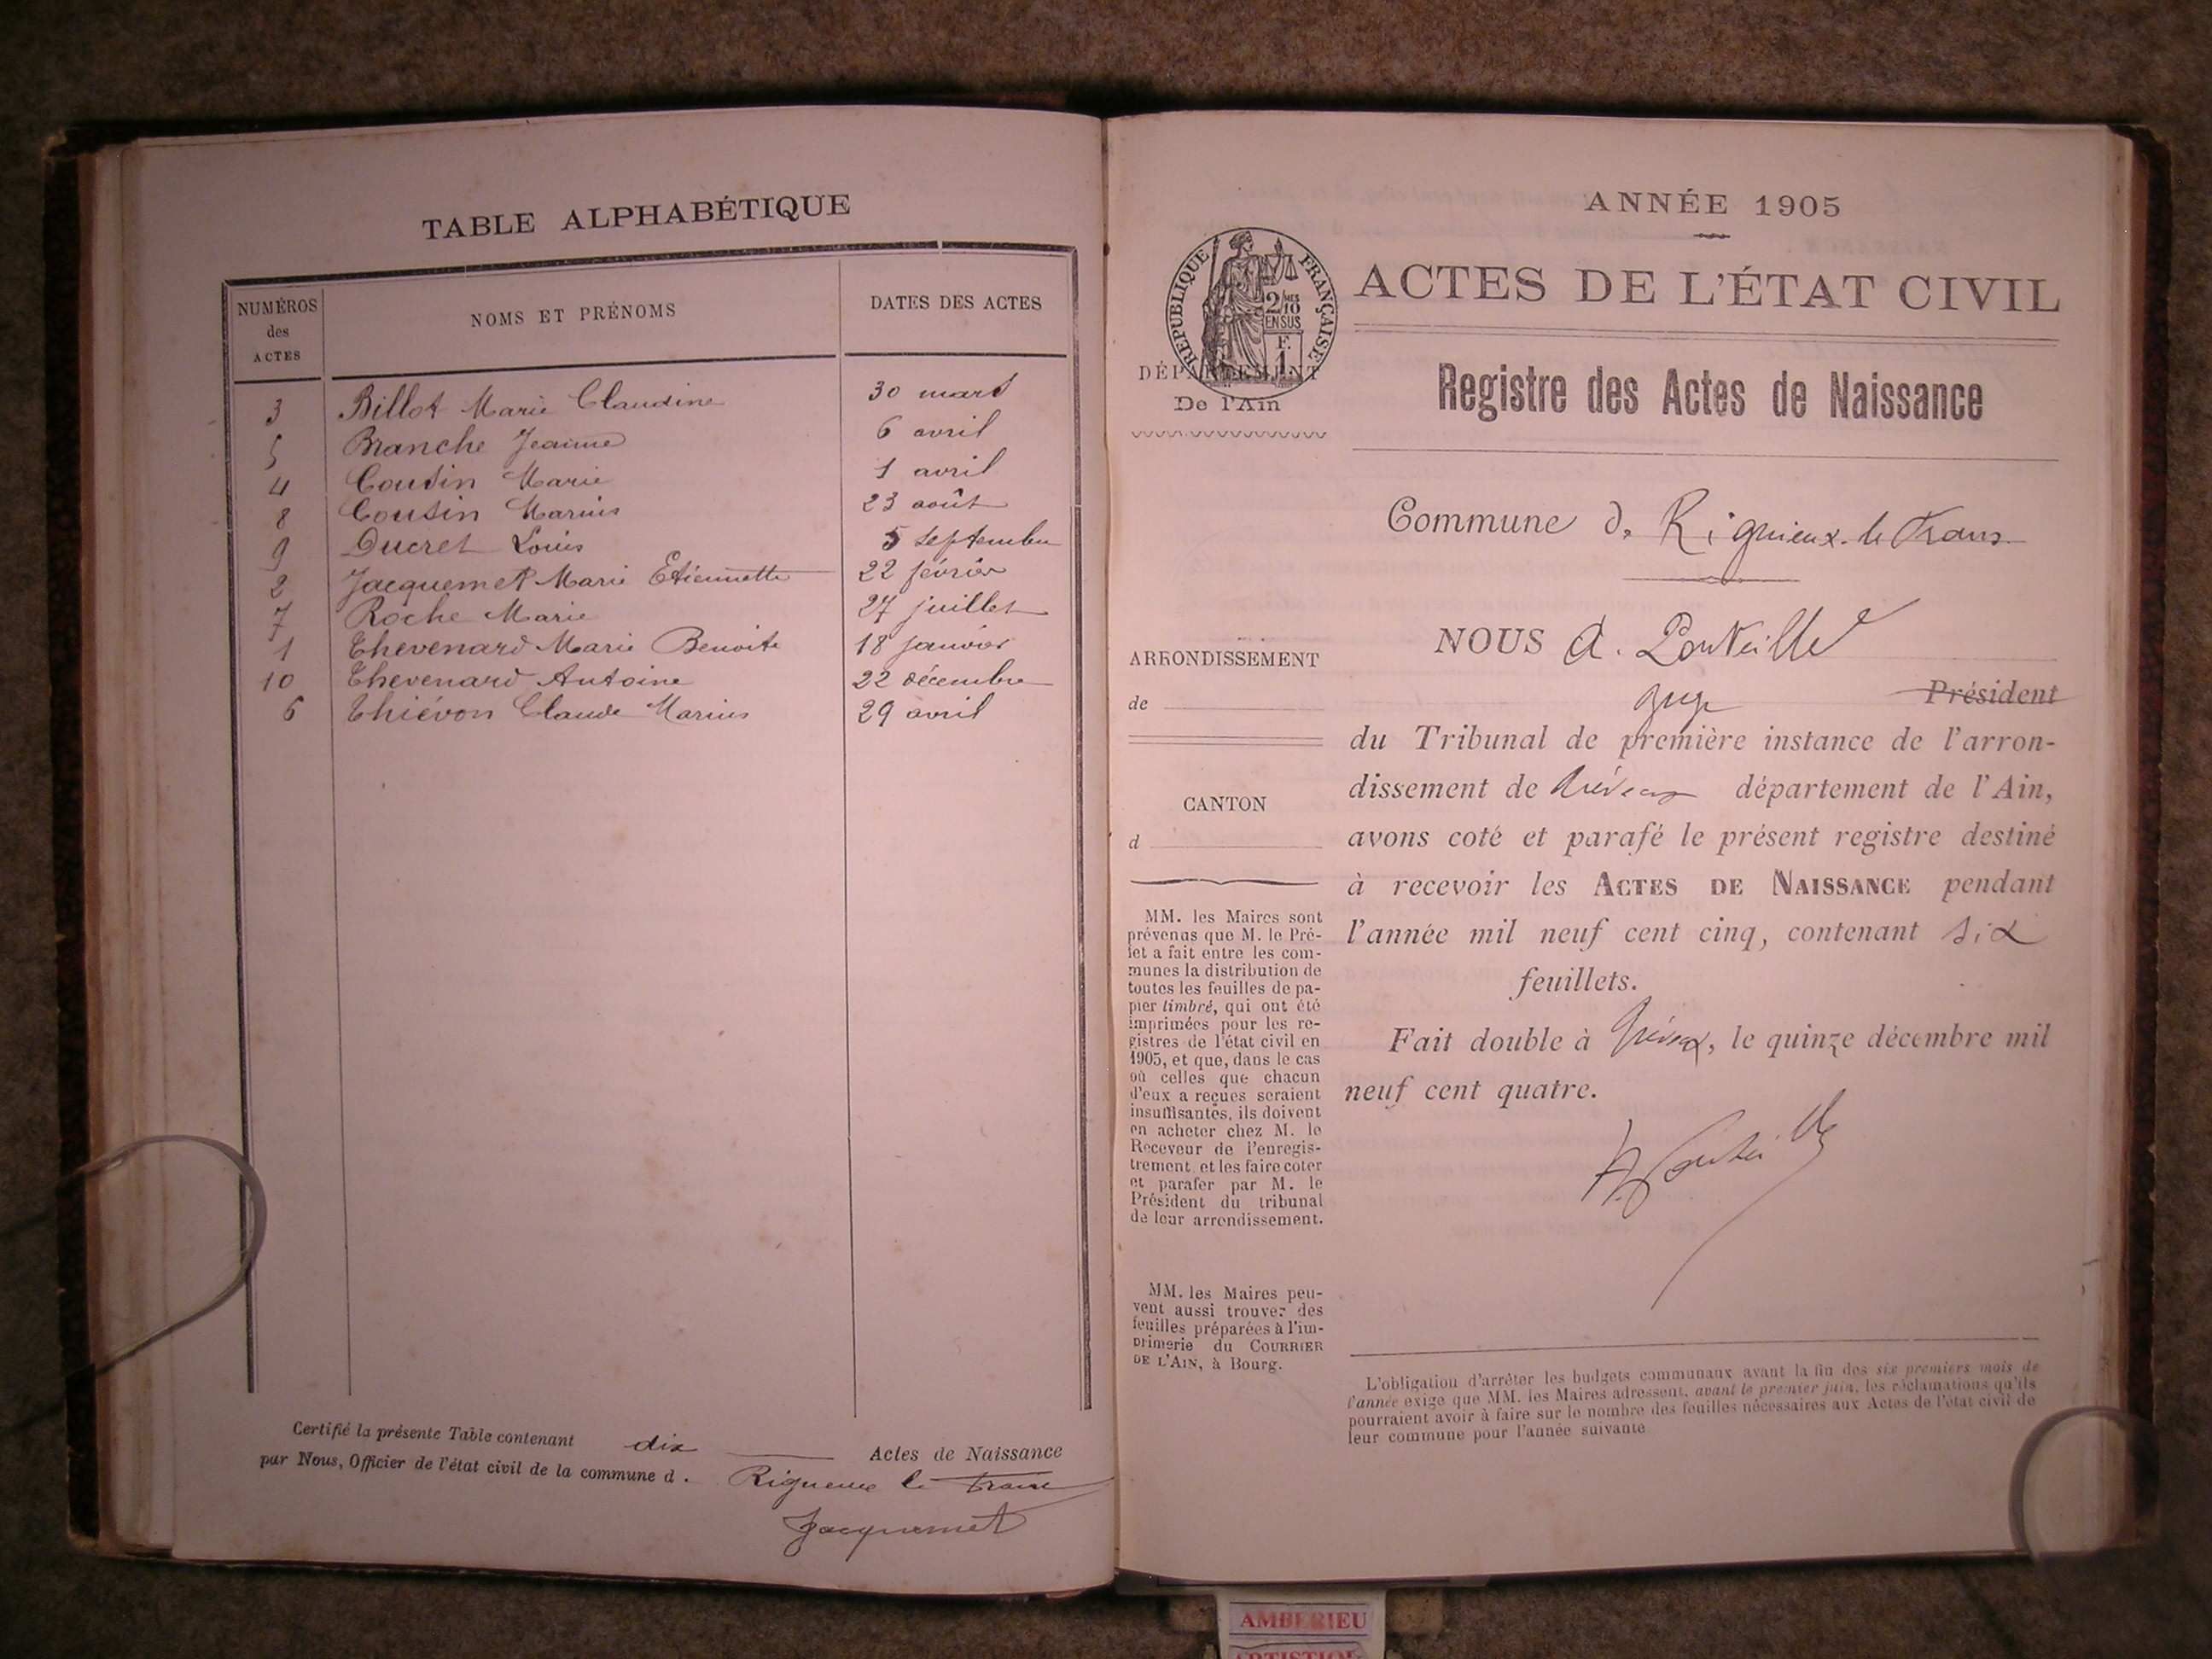 TABLE ALPHABÉTIQUE
NUMÉROS des ACTES NOMS ET PRÉNOMS DATES DES ACTES
3 Billot Marie Claudine 30 mars
5 Branche Jeanne 6 avril
4 Cousin Marie 1 avril
8 Cousin Marius 23 août
9 Ducret Louis 5 septembre
2 Jacquemet Marie Etiennette 22 février
7 Roche Marie 27 juillet
1 Thevenard Marie Benoite 18 janvier
10 Thevenard Antoine 22 décembre
6 Thiévon Claude Marius 29 avril
Certifié la présente Table contenant dix Actes de Naissance
par Nous, Officier de l'état civil de la commune d. Rigneux le Franc
Jacquemet
ANNÉE 1905
RÉPUBLIQUE FRANÇAISE
2/10 MES
EN SUS
F.
1
ACTES DE L'ÉTAT CIVIL
DÉPARTEMENT
De l'Ain
Registre des Actes de Naissance
Commune de Rignieux-le-Franc
ARRONDISSEMENT
de
CANTON
d
MM. les Maires sont
prévenus que M. le Pré-
fet a fait entre les com-
munes la distribution de
toutes les feuilles de pa-
pier timbré, qui ont été
imprimées pour les re-
gistres de l'état civil en
1905, et que, dans le cas
où celles que chacun
d'eux a reçues seraient
insuffisantes, ils doivent
en acheter chez M. le
Receveur de l'enregis-
trement, et les faire coter
et parafer par M. le
Président du tribunal
de leur arrondissement.
MM. les Maires peu-
vent aussi trouver des
feuilles préparées à l'im-
primerie du COURRIER
DE L'AIN, à Bourg.
NOUS A. Ponteille
juge Président
du Tribunal de première instance de l'arron-
dissement de Trévoux département de l'Ain,
avons coté et parafé le présent registre destiné
à recevoir les ACTES DE NAISSANCE pendant
l'année mil neuf cent cinq, contenant six
feuillets.
Fait double à Trévoux, le quinze décembre mil
neuf cent quatre.
A. Ponteille
L'obligation d'arrêter les budgets communaux avant la fin des six premiers mois de
l'année exige que MM. les Maires adressent, avant le premier juin, les réclamations qu'ils
pourraient avoir à faire sur le nombre des feuilles nécessaires aux Actes de l'état civil de
leur commune pour l'année suivante
AMBERIEU